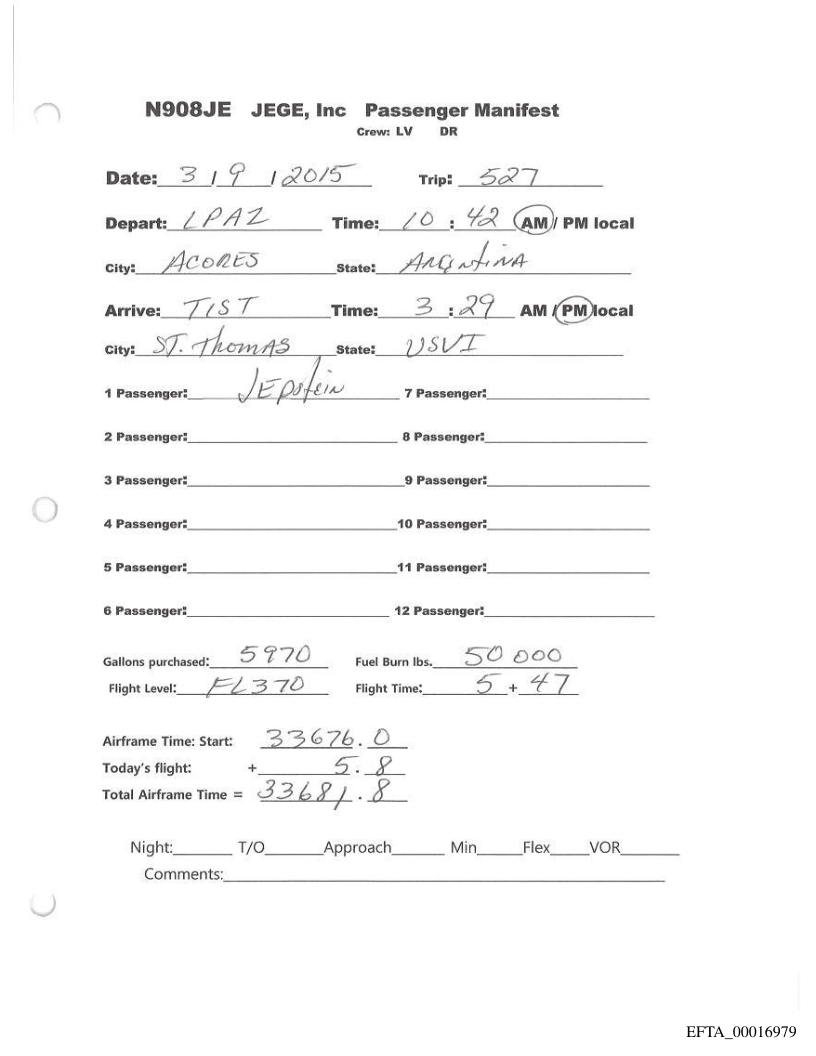 N908JE JEGE, Inc Passenger Manifest
Crew: LV DR
Date: 3 / 9 / 2015 Trip: 527
Depart: LPAZ Time: 10 : 42 AM / PM local
City: ACORES State: ARGENTINA
Arrive: TIST Time: 3 : 29 AM / PM local
City: ST. THOMAS State: USVI
1 Passenger: JEpstein 7 Passenger:
2 Passenger: 8 Passenger:
3 Passenger: 9 Passenger:
4 Passenger: 10 Passenger:
5 Passenger: 11 Passenger:
6 Passenger: 12 Passenger:
Gallons purchased: 5970 Fuel Burn lbs. 50 000
Flight Level: FL370 Flight Time: 5 + 47
Airframe Time: Start: 33676.0
Today's flight: + 5.8
Total Airframe Time = 33681.8
Night: T/O Approach Min Flex VOR
Comments:
EFTA_00016979